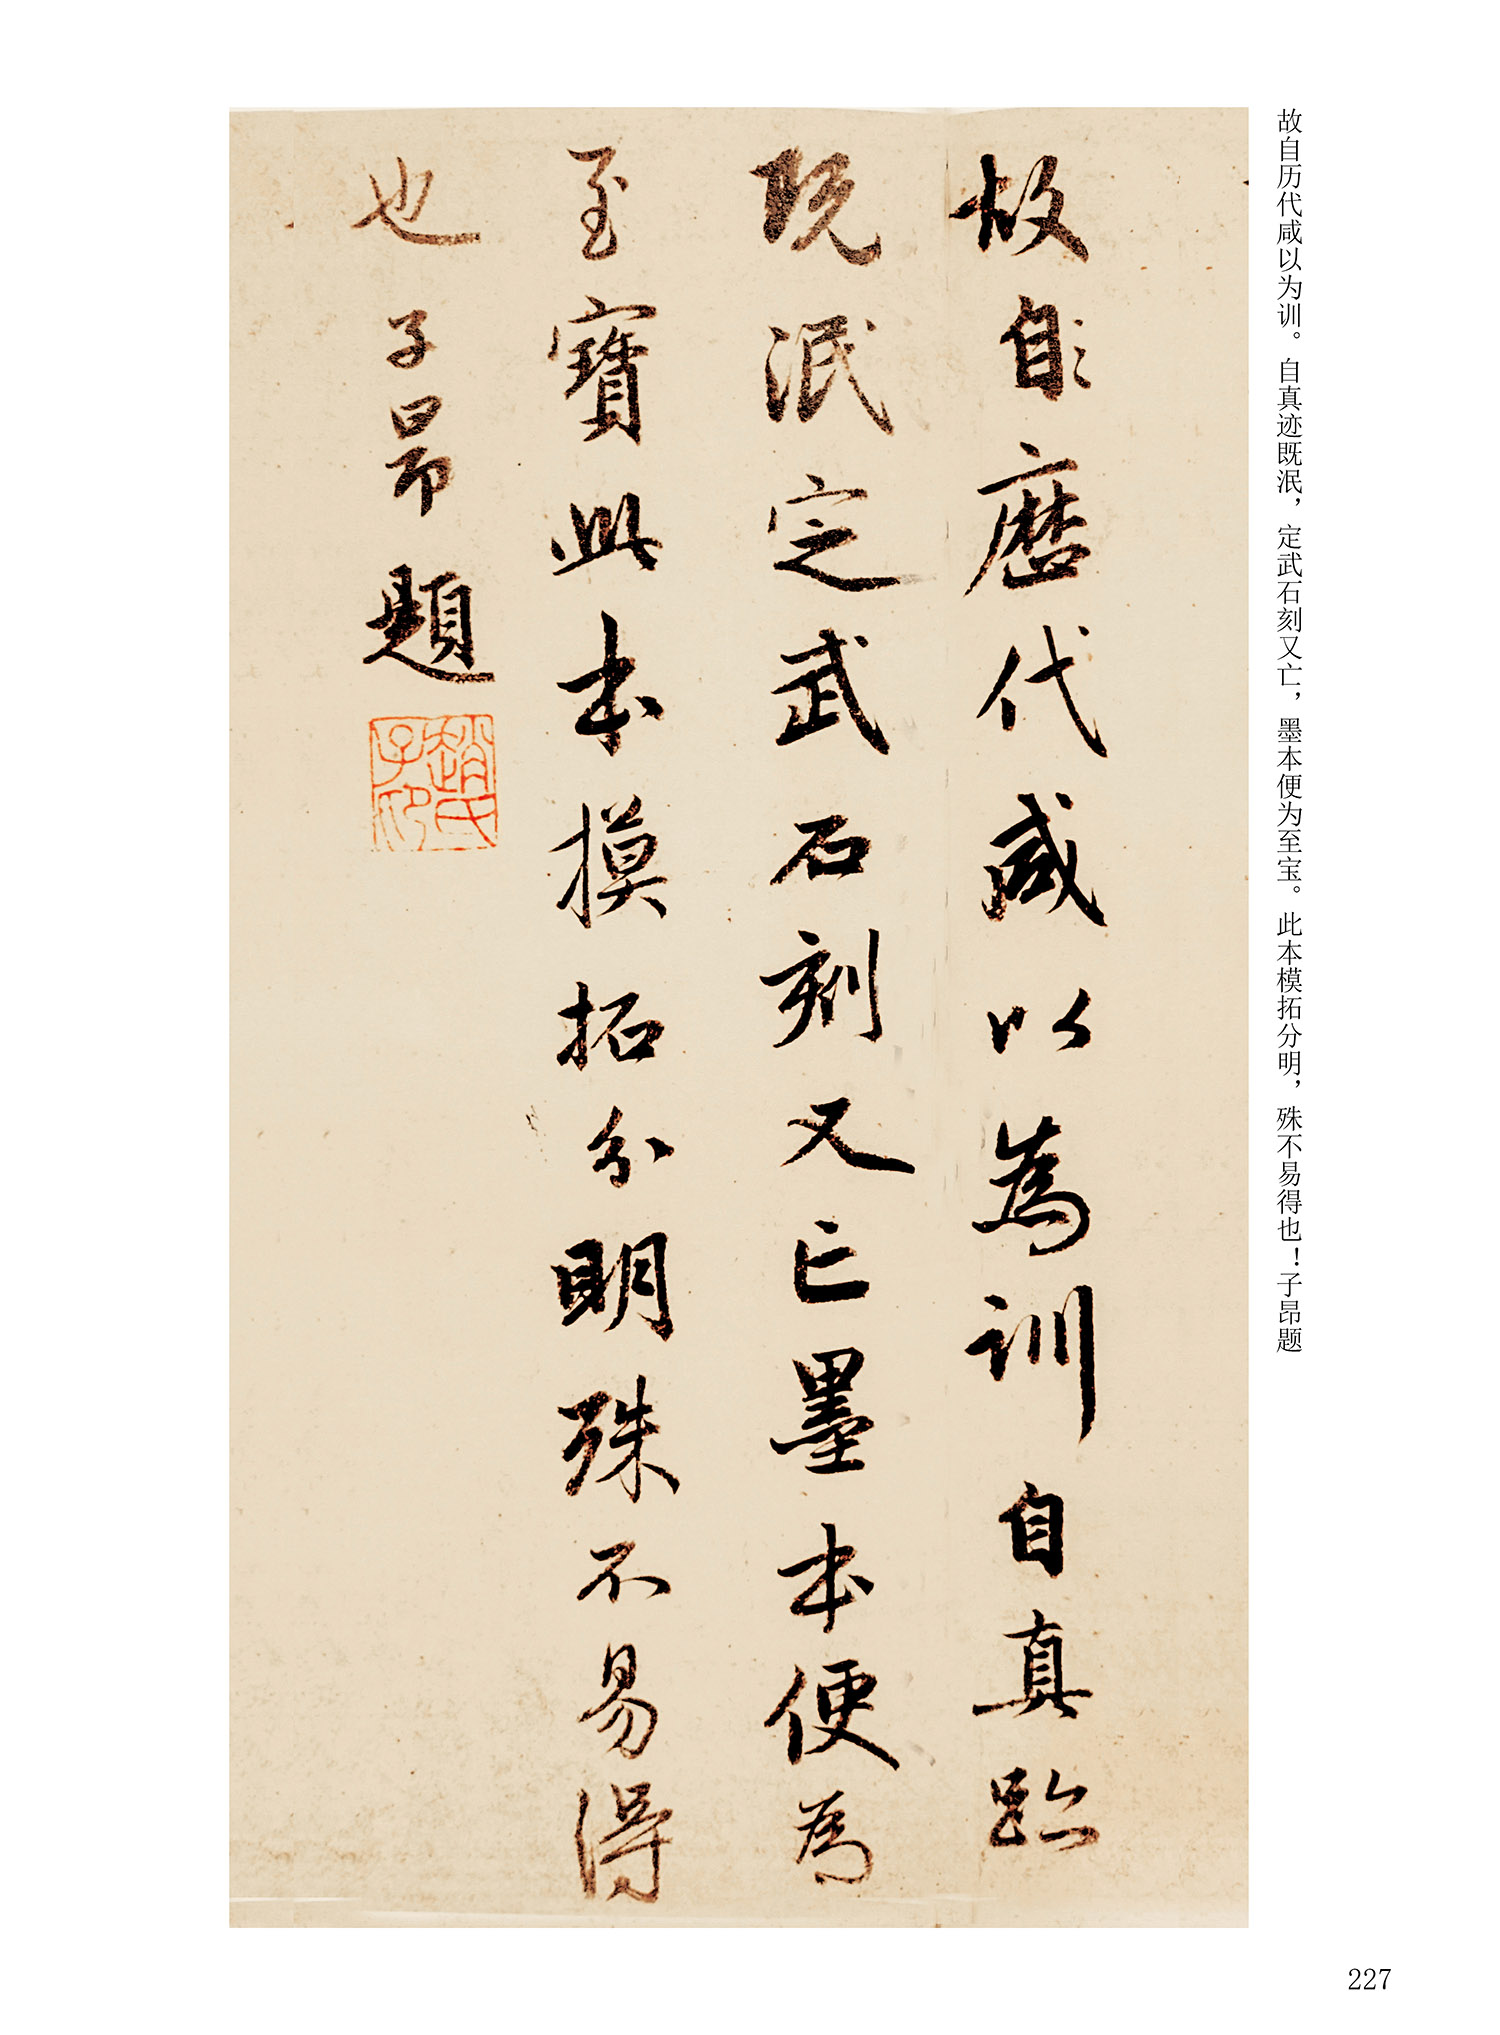 故自历代咸以为训。自真迹既泯，定武石刻又亡，墨本便为至宝。此本模拓分明，殊不易得也！子昂题
故自歷代咸以為訓自真跡
既泯定武石刻又亡墨本便為
至寶此本摸拓分明殊不易得
也子昂題
趙氏
子印
227